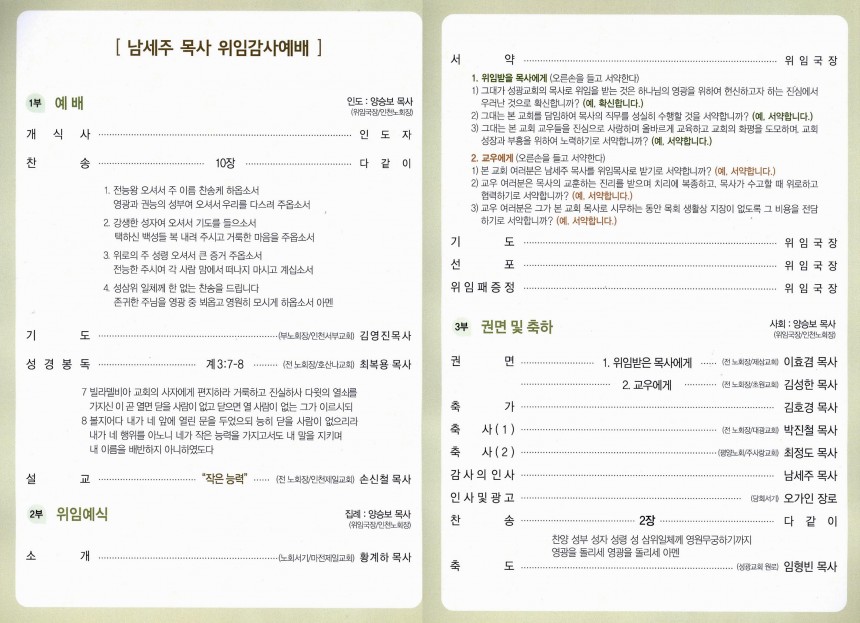 [ 남세주 목사 위임감사예배 ]
1부 예 배 인도 : 양승보 목사
(위임국장/인천노회장)
개 식 사 인 도 자
찬 송 10장 다 같 이
1. 전능왕 오셔서 주 이름 찬송케 하옵소서
영광과 권능의 성부여 오셔서 우리를 다스려 주옵소서
2. 강생한 성자여 오셔서 기도를 들으소서
택하신 백성들 복 내려 주시고 거룩한 마음을 주옵소서
3. 위로의 주 성령 오셔서 큰 증거 주옵소서
전능한 주시여 각 사람 맘에서 떠나지 마시고 계십소서
4. 성삼위 일체께 한 없는 찬송을 드립니다
존귀한 주님을 영광 중 뵈옵고 영원히 모시게 하옵소서 아멘
기 도 (부노회장/인천서부교회) 김영진목사
성 경 봉 독 계 3:7-8 (전 노회장/호산나교회) 최복용 목사
7 빌라델비아 교회의 사자에게 편지하라 거룩하고 진실하사 다윗의 열쇠를
가지신 이 곧 열면 닫을 사람이 없고 닫으면 열 사람이 없는 그가 이르시되
8 볼지어다 내가 네 앞에 열린 문을 두었으되 능히 닫을 사람이 없으리라
내가 네 행위를 아노니 네가 작은 능력을 가지고서도 내 말을 지키며
내 이름을 배반하지 아니하였도다
설 교 "작은 능력" (전 노회장/인천제일교회) 손신철 목사
2부 위임예식 집례 : 양승보 목사
(위임국장/인천노회장)
소 개 (노회서기/마전제일교회) 황계하 목사
서 약 위 임 국 장
1. 위임받을 목사에게 (오른손을 들고 서약한다)
1) 그대가 성광교회의 목사로 위임을 받는 것은 하나님의 영광을 위하여 헌신하고자 하는 진심에서
우러난 것으로 확신합니까? (예, 확신합니다.)
2) 그대는 본 교회를 담임하여 목사의 직무를 성실히 수행할 것을 서약합니까? (예, 서약합니다.)
3) 그대는 본 교회 교우들을 진심으로 사랑하며 올바르게 교육하고 교회의 화평을 도모하며, 교회
성장과 부흥을 위하여 노력하기로 서약합니까? (예, 서약합니다.)
2. 교우에게 (오른손을 들고 서약한다)
1) 본 교회 여러분은 남세주 목사를 위임목사로 받기로 서약합니까? (예, 서약합니다.)
2) 교우 여러분은 목사의 교훈하는 진리를 받으며 치리에 복종하고, 목사가 수고할 때 위로하고
협력하기로 서약합니까? (예, 서약합니다.)
3) 교우 여러분은 그가 본 교회 목사로 시무하는 동안 목회 생활상 지장이 없도록 그 비용을 전담
하기로 서약합니까? (예, 서약합니다.)
기 도 위 임 국 장
선 포 위 임 국 장
위 임 패 증 정 위 임 국 장
3부 권면 및 축하 사회 : 양승보 목사
(위임국장/인천노회장)
권 면 1. 위임받은 목사에게 (전 노회장/제삼교회) 이효겸 목사
2. 교우에게 (전 노회장/초원교회) 김성한 목사
축 가 김호경 목사
축 사 ( 1 ) (전 노회장/대광교회) 박진철 목사
축 사 ( 2 ) (평양노회/주사랑교회) 최정도 목사
감 사 의 인 사 남세주 목사
인 사 및 광 고 (당회서기) 오가인 장로
찬 송 2장 다 같 이
찬양 성부 성자 성령 성 삼위일체께 영원무궁하기까지
영광을 돌리세 영광을 돌리세 아멘
축 도 (성광교회 원로) 임형빈 목사